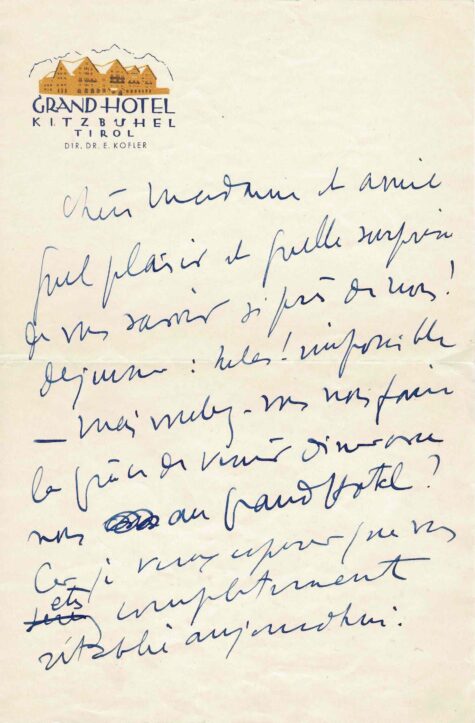 GRAND-HOTEL
KITZBÜHEL
TIROL
DIR. DR. E. KOFLER
Chère Madame et amie
Quel plaisir et quelle surprise
de vous savoir si près de nous!
Déjeuner : hélas! impossible
— mais voulez-vous nous faire
la grâce de venir diner avec
nous au Grand Hotel?
Car je veux espérer que vous
êtes complètement
rétablie aujourdhui.